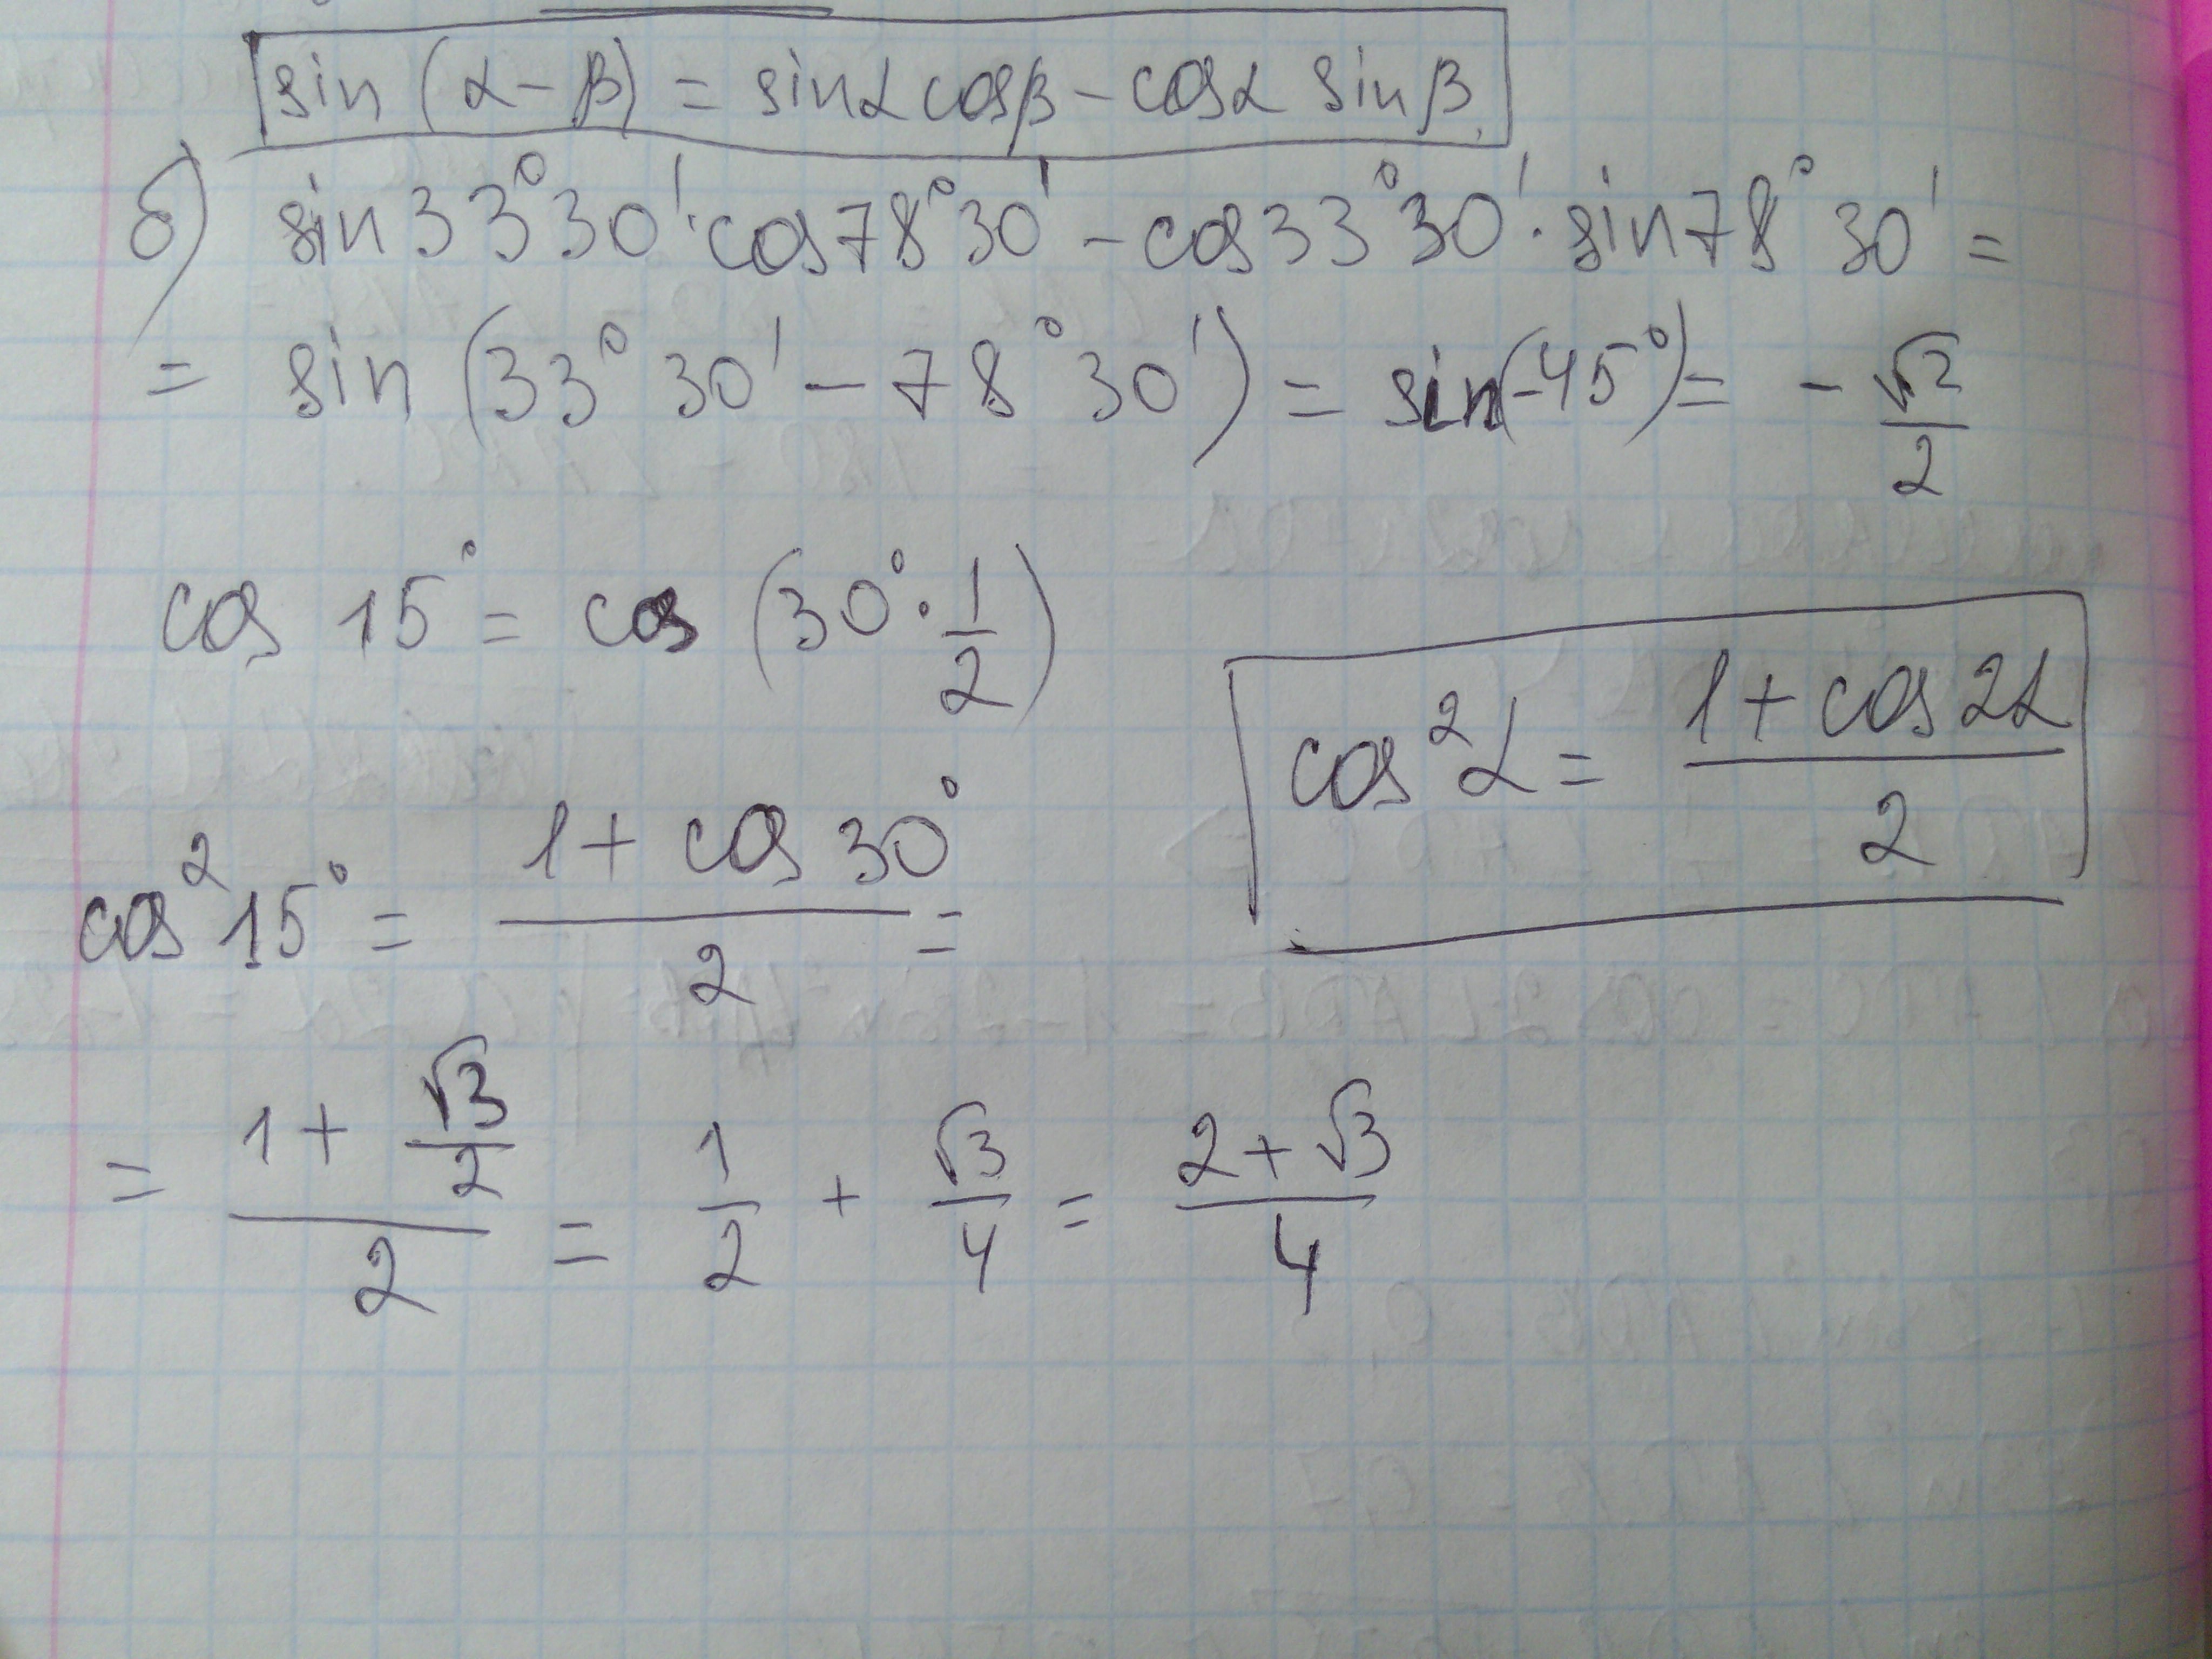 sin (α - β) = sinα cosβ - cosα sin β
б) sin33°30'·cos78°30' - cos33°30'·sin78°30' =
= sin (33°30' - 78°30') = sin(-45°) = - √2/2
cos 15° = cos (30°·1/2)
cos²α = (1 + cos 2α)/2
cos²15° = (1 + cos 30°)/2 =
= (1 + √3/2)/2 = 1/2 + √3/4 = (2 + √3)/4